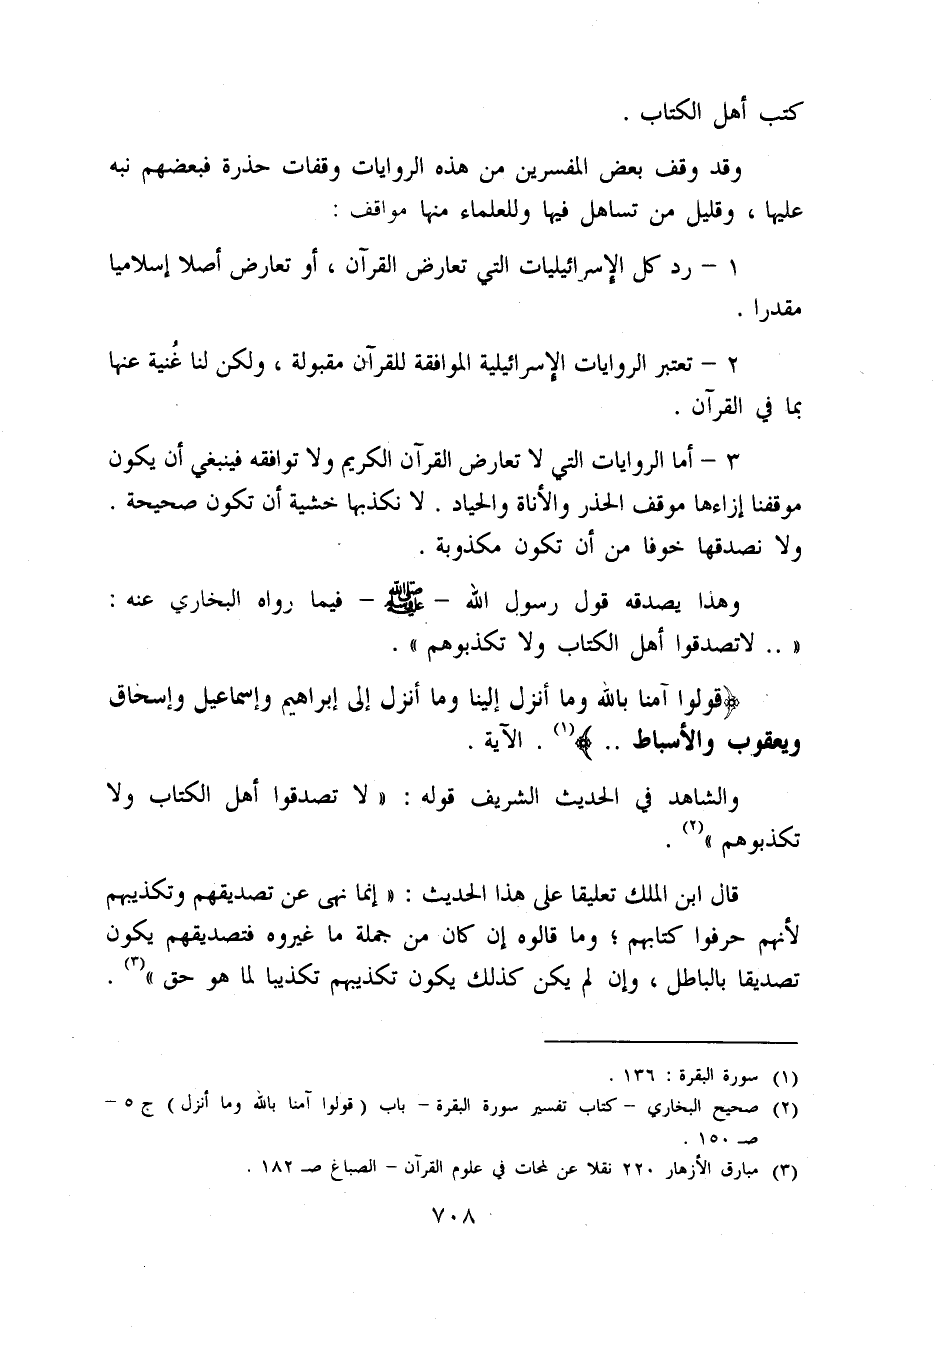 كتب أهل الكتاب .
وقد وقف بعض المفسرين من هذه الروايات وقفات حذرة فبعضهم نبه
عليها ، وقليل من تساهل فيها وللعلماء منها مواقف :
١ – رد كل الإسرائيليات التي تعارض القرآن ، أو تعارض أصلا إسلاميا
مقدرا .
٢ – تعتبر الروايات الإسرائيلية الموافقة للقرآن مقبولة ، ولكن لنا غُنية عنها
بما في القرآن .
٣ – أما الروايات التي لا تعارض القرآن الكريم ولا توافقه فينبغي أن يكون
موقفنا إزاءها موقف الحذر والأناة والحياد . لا نكذبها خشية أن تكون صحيحة .
ولا نصدقها خوفا من أن تكون مكذوبة .
وهذا يصدقه قول رسول الله – ﷺ – فيما رواه البخاري عنه :
« .. لاتصدقوا أهل الكتاب ولا تكذبوهم » .
﴿قولوا آمنا بالله وما أنزل إلينا وما أنزل إلى إبراهيم وإسماعيل وإسحاق
ويعقوب والأسباط .. ﴾(١) . الآية .
والشاهد في الحديث الشريف قوله : « لا تصدقوا أهل الكتاب ولا
تكذبوهم »(٢) .
قال ابن الملك تعليقا على هذا الحديث : « إنما نهى عن تصديقهم وتكذيبهم
لأنهم حرفوا كتابهم ؛ وما قالوه إن كان من جملة ما غيروه فتصديقهم يكون
تصديقا بالباطل ، وإن لم يكن كذلك يكون تكذيبهم تكذيبا لما هو حق »(٣) .
(١) سورة البقرة : ١٣٦ .
(٢) صحيح البخاري – كتاب تفسير سورة البقرة – باب ( قولوا آمنا بالله وما أنزل ) ج ٥ –
صـ ١٥٠ .
(٣) مبارق الأزهار ٢٢٠ نقلا عن لمحات في علوم القرآن – الصباغ صـ ١٨٢ .
٧٠٨